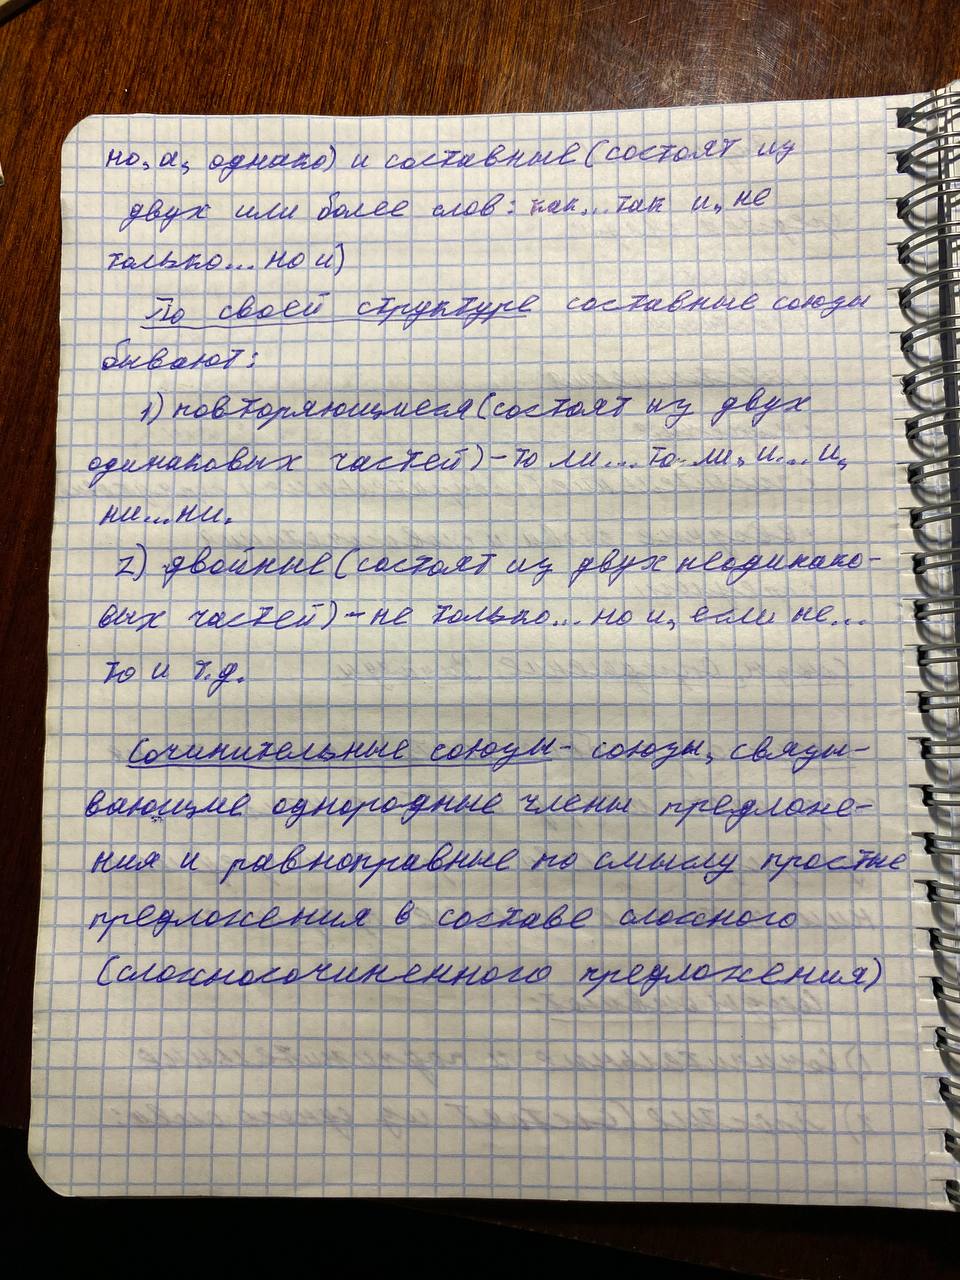 но, а, однако) и составные (состоят из
двух или более слов: как...так и, не
только... но и)
По своей структуре составные союзы
бывают:
1) повторяющиеся (состоят из двух
одинаковых частей) - то ли... то ли, и... и,
ни...ни.
2) двойные (состоят из двух неодинако-
вых частей) - не только... но и, если не...
то и т.д.
Сочинительные союзы - союзы, связы-
вающие однородные члены предложе-
ния и равноправные по смыслу простые
предложения в составе сложного
(сложносочиненного предложения)